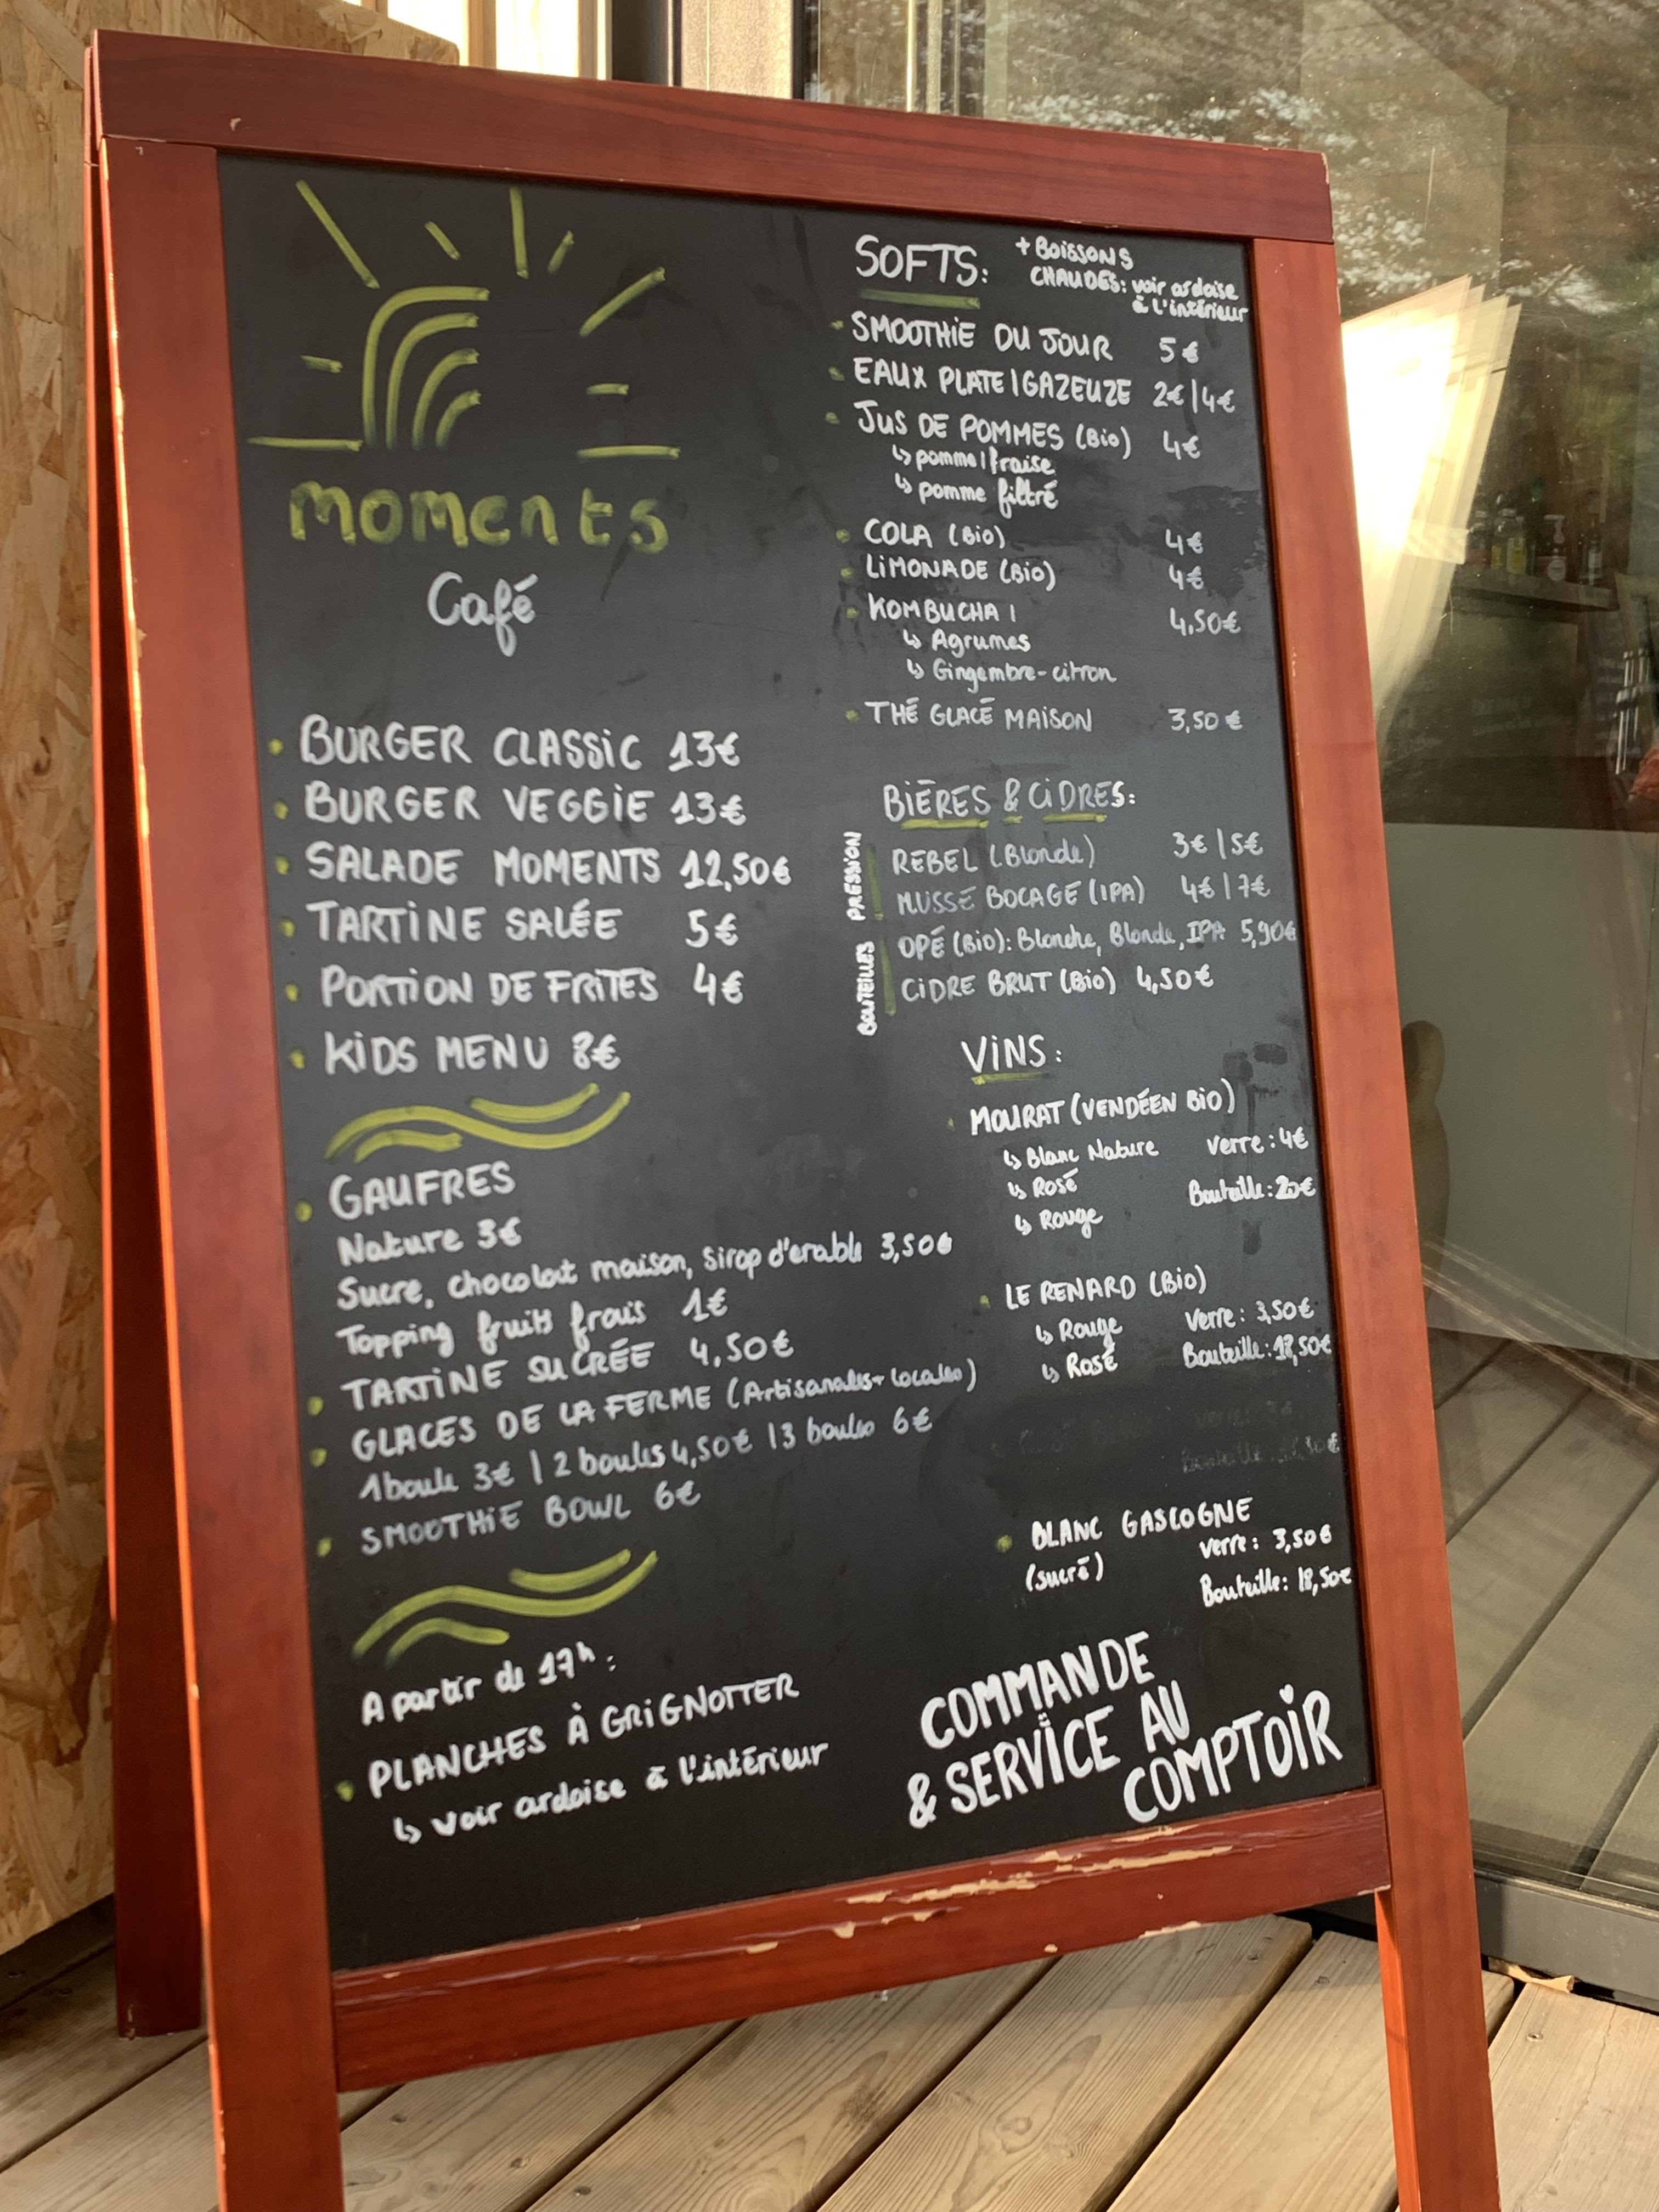 moments
Café
• BURGER CLASSIC 13€
• BURGER VEGGIE 13€
• SALADE MOMENTS 12,50€
• TARTINE SALÉE 5€
• PORTION DE FRITES 4€
• KIDS MENU 8€
• GAUFRES
Nature 3€
Sucre, chocolat maison, sirop d'erable 3,50€
Topping fruits frais 1€
• TARTINE SUCRÉE 4,50€
• GLACES DE LA FERME (Artisanales + locales)
1 boule 3€ | 2 boules 4,50€ | 3 boules 6€
• SMOOTHIE BOWL 6€
A partir de 17h :
• PLANCHES À GRIGNOTTER
↳ voir ardoise à l'intérieur
SOFTS: + BOISSONS
CHAUDES: voir ardoise
à l'intérieur
• SMOOTHIE DU JOUR 5€
• EAUX PLATE | GAZEUZE 2€ | 4€
• JUS DE POMMES (Bio) 4€
↳ pomme | fraise
↳ pomme filtré
• COLA (Bio) 4€
• LIMONADE (Bio) 4€
• KOMBUCHA | 4,50€
↳ Agrumes
↳ Gingembre-citron
• THÉ GLACÉ MAISON 3,50€
BIÈRES & CIDRES:
PRESSION
REBEL (Blonde) 3€ | 5€
MUSSE BOCAGE (IPA) 4€ | 7€
BOUTEILLES
OPÉ (Bio): Blanche, Blonde, IPA 5,90€
CIDRE BRUT (Bio) 4,50€
VINS:
• MOURAT (VENDÉEN BIO)
↳ Blanc Nature Verre: 4€
↳ Rosé Bouteille: 20€
↳ Rouge
• LE RENARD (Bio)
↳ Rouge Verre: 3,50€
↳ Rosé Bouteille: ,50€
• BLANC GASCOGNE
(sucré) Verre: 3,50€
Bouteille: 18,50€
COMMANDE
& SERVICE AU
COMPTOIR